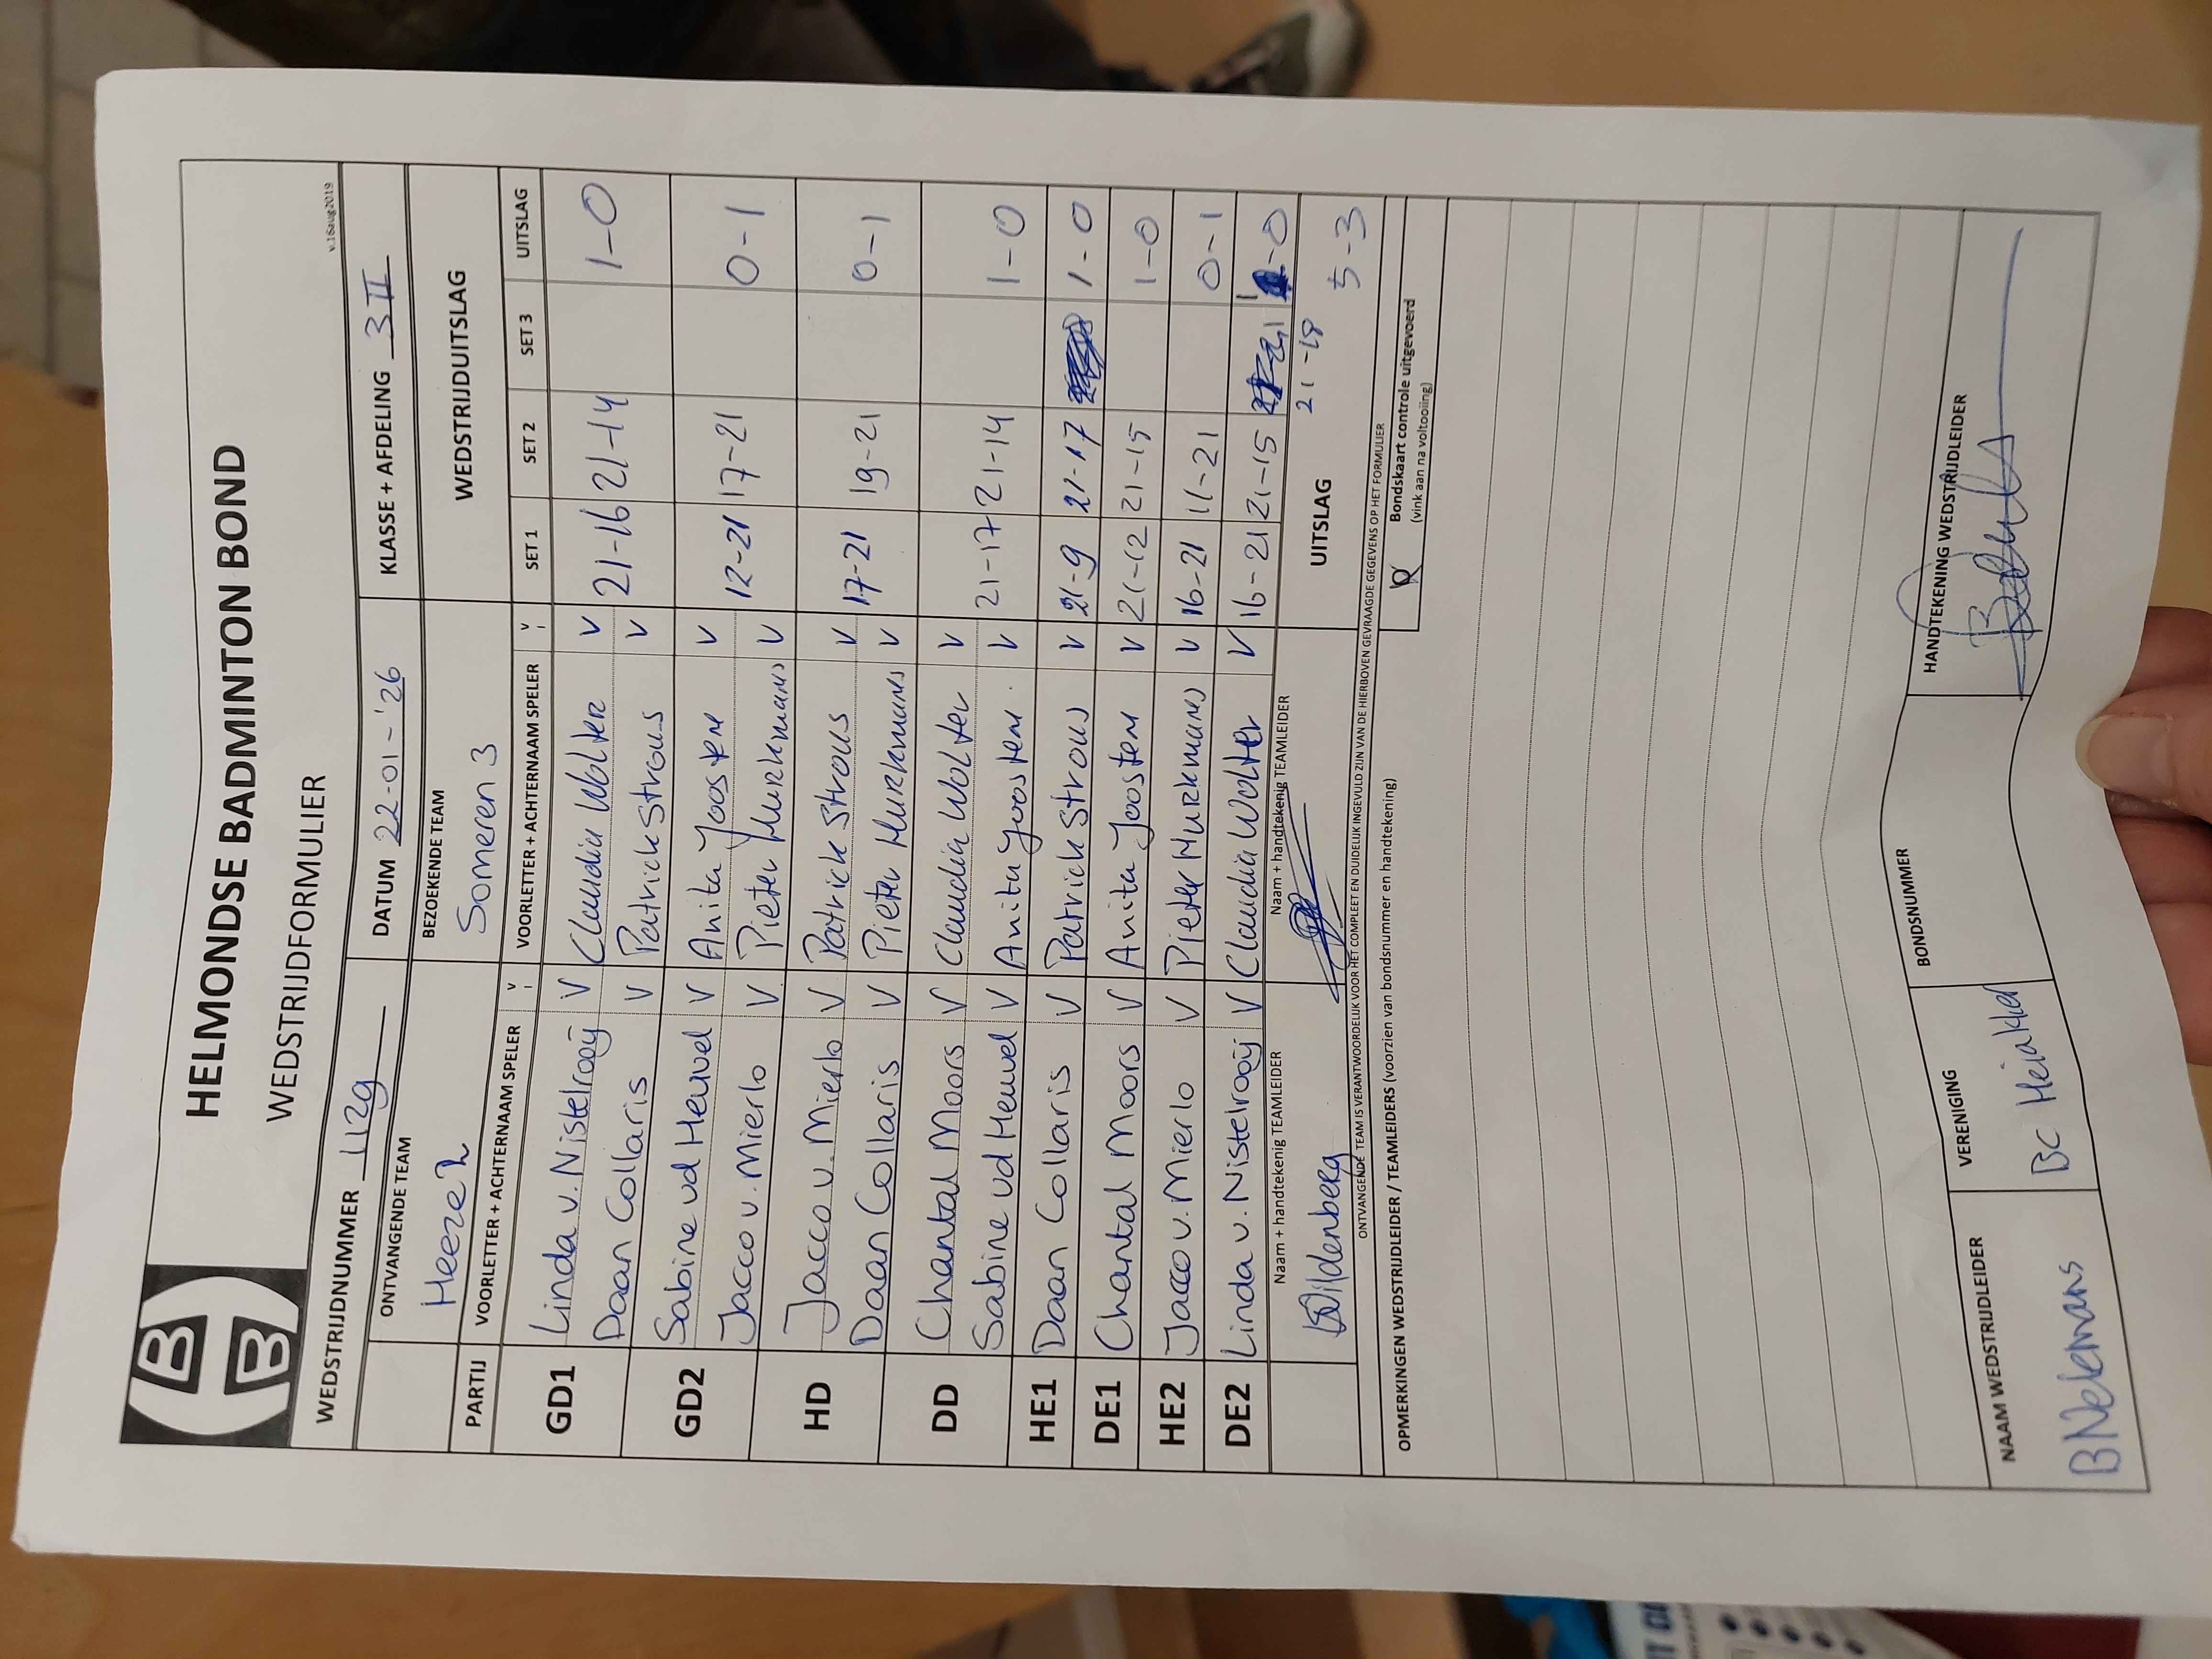 HELMONDSE BADMINTON BOND
WEDSTRIJDFORMULIER
v.16aug2019
WEDSTRIJDNUMMER 1129 DATUM 22-01-'26 KLASSE + AFDELING 3 II
ONTVANGENDE TEAM BEZOEKENDE TEAM WEDSTRIJDUITSLAG
Heeze 2 Someren 3
PARTIJ VOORLETTER + ACHTERNAAM SPELER V VOORLETTER + ACHTERNAAM SPELER V SET 1 SET 2 SET 3 UITSLAG
GD1 Linda v. Nistelrooij V Claudia Wolter V 21-16 21-14 1-0
Daan Collaris V Patrick Strous V
GD2 Sabine vd Heuvel V Anita Joosten V 12-21 17-21 0-1
Jacco v. Mierlo V Pieter Hurkmans V
HD Jacco v. Mierlo V Patrick Strous V 17-21 19-21 0-1
Daan Collaris V Pieter Hurkmans V
DD Chantal Moors V Claudia Wolter V 21-17 21-14 1-0
Sabine vd Heuvel V Anita Joosten V
HE1 Daan Collaris V Patrick Strous V 21-9 21-17 1-0
DE1 Chantal Moors V Anita Joosten V 21-12 21-15 1-0
HE2 Jacco v. Mierlo V Pieter Hurkmans V 16-21 11-21 0-1
DE2 Linda v. Nistelrooij V Claudia Wolter V 16-21 21-15 1-0
21-18
Naam + handtekenig TEAMLEIDER Naam + handtekenig TEAMLEIDER UITSLAG 5-3
Wildenberg
ONTVANGENDE TEAM IS VERANTWOORDELIJK VOOR HET COMPLEET EN DUIDELIJK INGEVULD ZIJN VAN DE HIERBOVEN GEVRAAGDE GEGEVENS OP HET FORMULIER
OPMERKINGEN WEDSTRIJDLEIDER / TEAMLEIDERS (voorzien van bondsnummer en handtekening) Bondskaart controle uitgevoerd
(vink aan na voltooiing)
NAAM WEDSTRIJDLEIDER VERENIGING BONDSNUMMER HANDTEKENING WEDSTRIJDLEIDER
BNelemans BC Heiakker